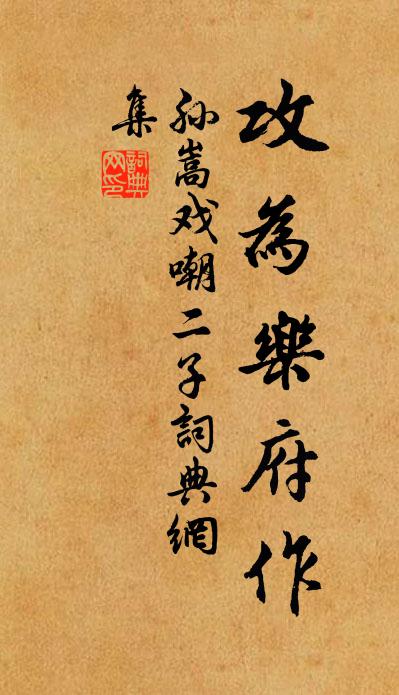 攻為樂府作
孙嵩戏嘲二子詞典網
集
詞典網印